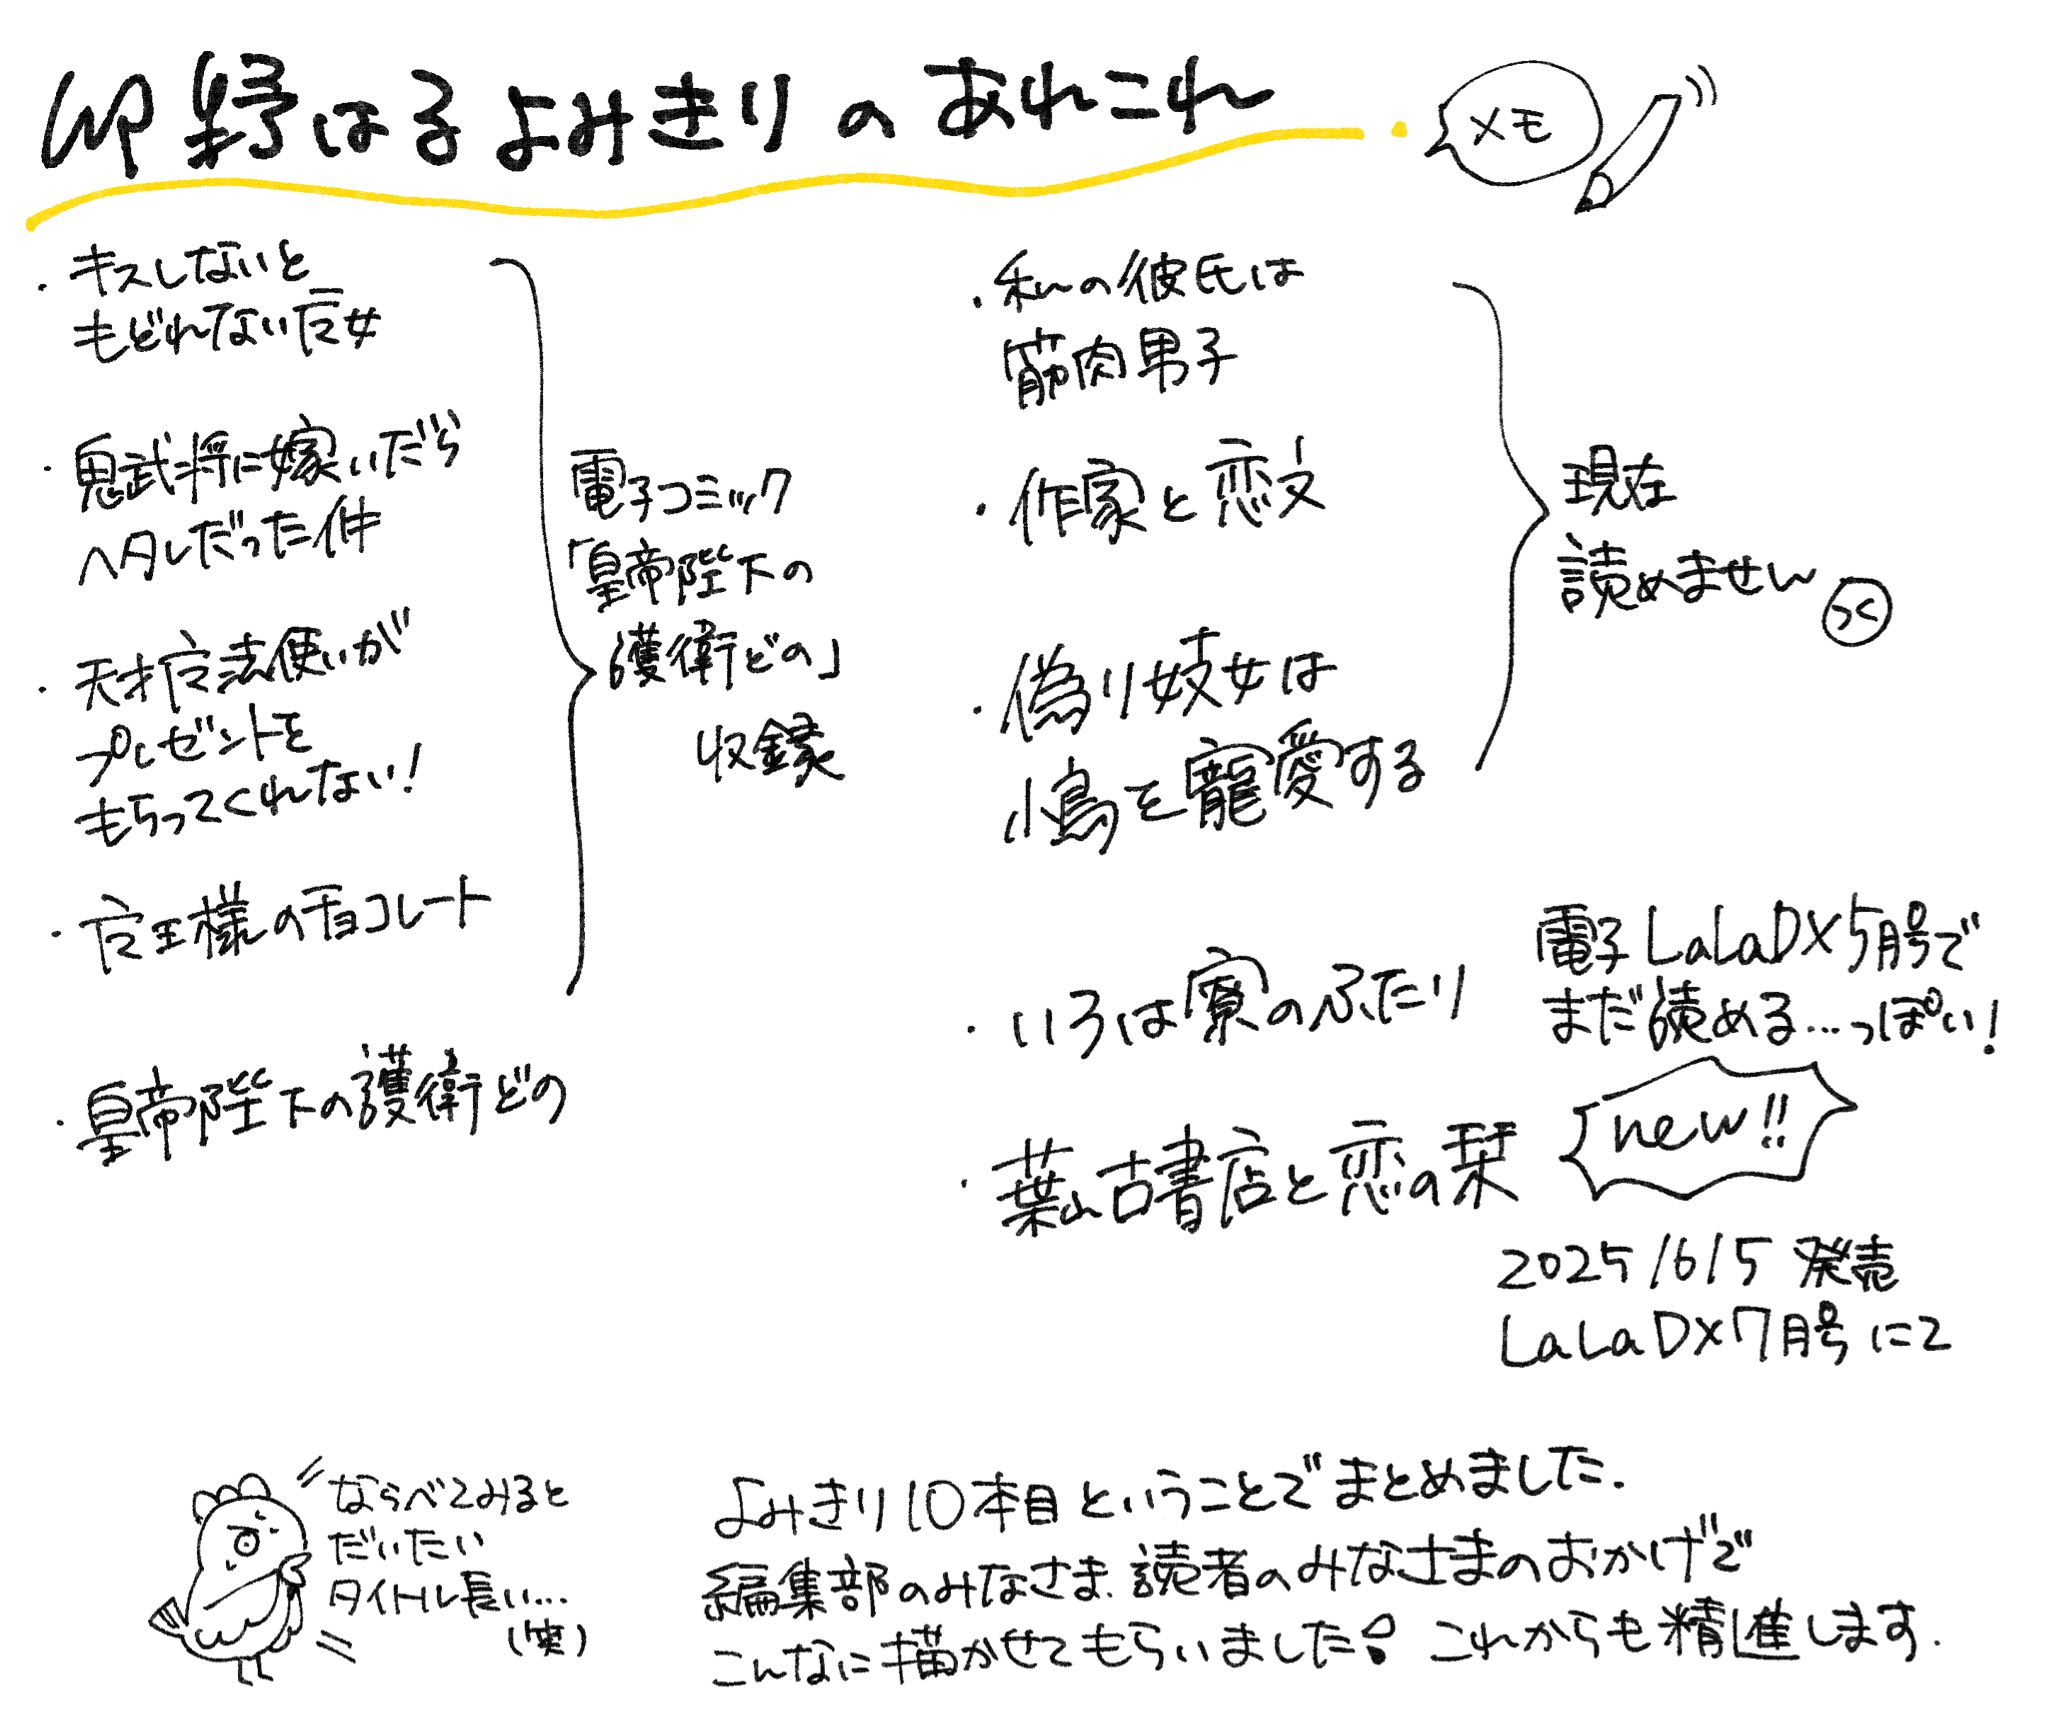 卯野はるよみきりのあれこれ
メモ
・キスしないと
もどれない魔女
・鬼武将に嫁いだら
ヘタレだった件
・天才魔法使いが
プレゼントを
もらってくれない!
・魔王様のチョコレート
電子コミック
「皇帝陛下の
護衛どの」
収録
・皇帝陛下の護衛どの
・私の彼氏は
筋肉男子
・作家と恋文
・偽り妓女は
小鳥を寵愛する
現在
読めません
・いろは寮のふたり
電子LaLaDX5月号で
まだ読める…っぽい!
・葉山古書店と恋の栞
new!!
2025/6/5 発売
LaLaDX7月号にて
ならべてみると
だいたい
タイトル長い…
(笑)
よみきり10本目ということでまとめました.
編集部のみなさま、読者のみなさまのおかげで
こんなに描かせてもらいました! これからも精進します.